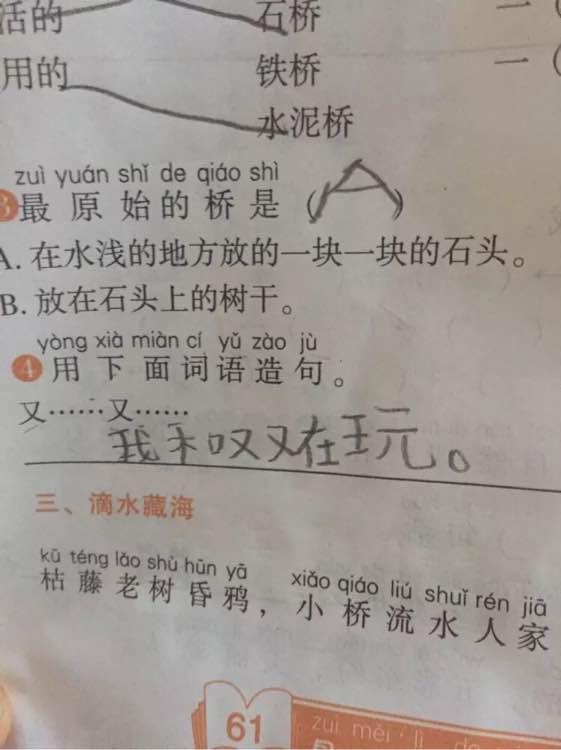 活的 石桥 一(
用的 铁桥 一(
水泥桥
zuì yuán shǐ de qiáo shì
3最原始的桥是(A)
A.在水浅的地方放的一块一块的石头。
B.放在石头上的树干。
yòng xià miàn cí yǔ zào jù
4用下面词语造句。
又……又……
我和又又在玩。
三、滴水藏海
kū téng lǎo shù hūn yā xiǎo qiáo liú shuǐ rén jiā
枯藤老树昏鸦，小桥流水人家
61 zuì měi lì de